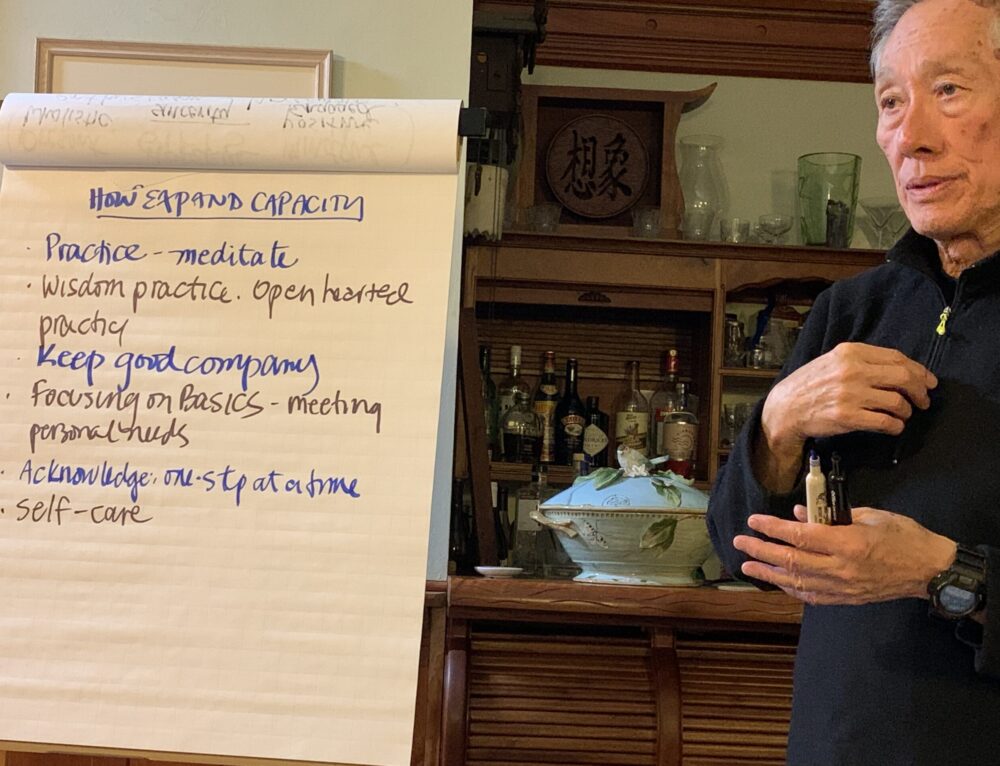 HOW EXPAND CAPACITY
· Practice - meditate
· Wisdom practice. Open hearted
practice
· Keep good company
· Focusing on BASICS - meeting
personal needs
· Acknowledge. one-step at a time
· Self-care
想象